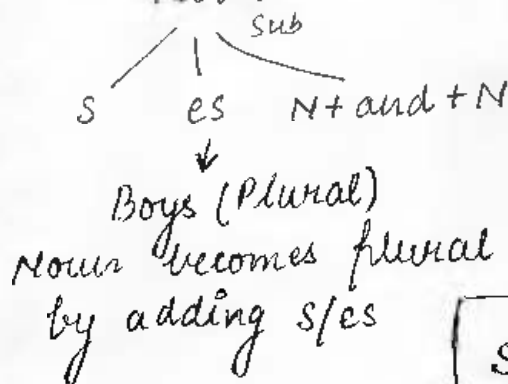 Sub
S es N + and + N
Boys (Plural)
Noun becomes plural
by adding s/es
S